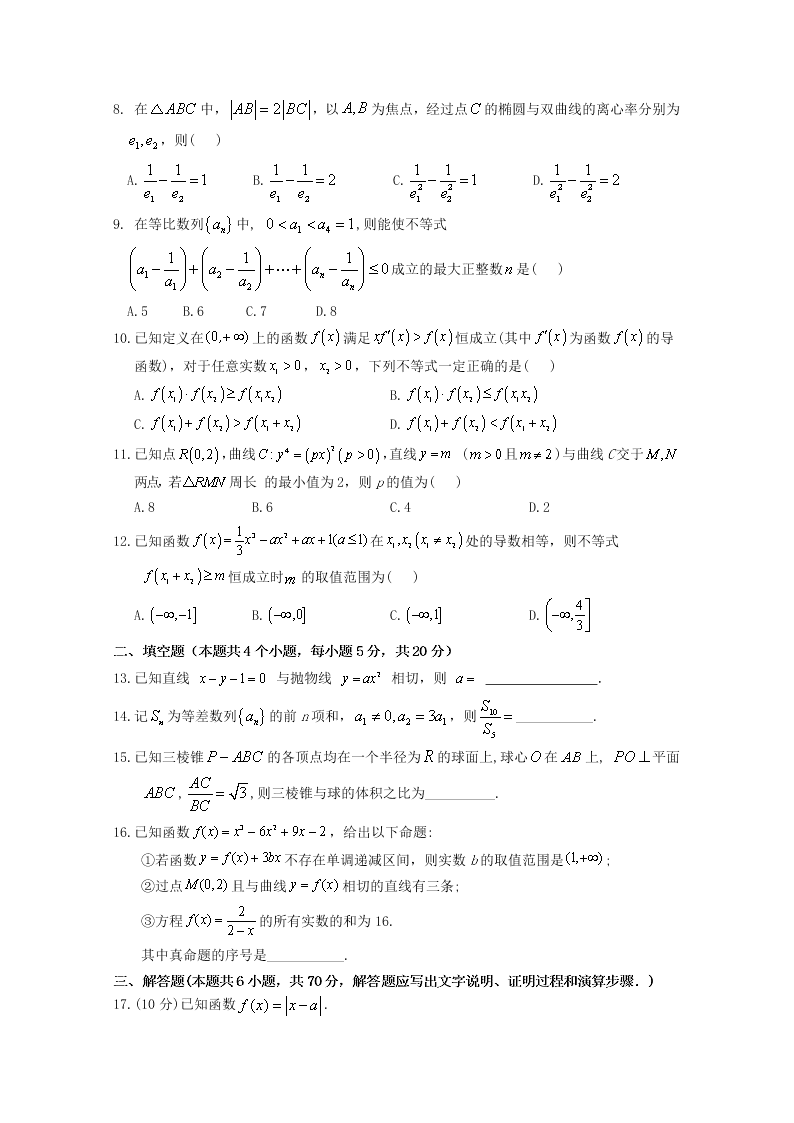 8. 在△ABC中，|AB|=2|BC|，以A,B为焦点，经过点C的椭圆与双曲线的离心率分别为
e₁,e₂，则(　)
A. 1/e₁ − 1/e₂ = 1　B. 1/e₁ − 1/e₂ = 2　C. 1/e₁² − 1/e₂² = 1　D. 1/e₁² − 1/e₂² = 2
9. 在等比数列{aₙ}中，0<a₁<a₄=1,则能使不等式
(a₁ − 1/a₁)+(a₂ − 1/a₂)+⋯+(aₙ − 1/aₙ)≤0成立的最大正整数n是(　)
A.5　B.6　C.7　D.8
10.已知定义在(0,+∞)上的函数f(x)满足xf′(x)>f(x)恒成立(其中f′(x)为函数f(x)的导
函数)，对于任意实数x₁>0，x₂>0，下列不等式一定正确的是(　)
A. f(x₁)·f(x₂)≥f(x₁x₂)　B. f(x₁)·f(x₂)≤f(x₁x₂)
C. f(x₁)+f(x₂)>f(x₁+x₂)　D. f(x₁)+f(x₂)<f(x₁+x₂)
11.已知点R(0,2),曲线C:y⁴=(px)²(p>0),直线y=m (m>0且m≠2)与曲线C交于M,N
两点，若△RMN周长 的最小值为2，则p的值为(　)
A.8　B.6　C.4　D.2
12.已知函数f(x)=1/3x³−ax²+ax+1(a≤1)在x₁,x₂(x₁≠x₂)处的导数相等，则不等式
f(x₁+x₂)≥m恒成立时m 的取值范围为(　)
A.(−∞,−1]　B.(−∞,0]　C.(−∞,1]　D.(−∞,4/3]
二、填空题（本题共4个小题，每小题5分，共20分）
13.已知直线 x−y−1=0 与抛物线 y=ax² 相切，则 a= ______________.
14.记Sₙ为等差数列{aₙ}的前n项和，a₁≠0,a₂=3a₁，则S₁₀/S₅=__________.
15.已知三棱锥P−ABC的各顶点均在一个半径为R的球面上,球心O在AB上, PO⊥平面
ABC,AC/BC=√3,则三棱锥与球的体积之比为_________.
16.已知函数f(x)=x³−6x²+9x−2，给出以下命题:
①若函数y=f(x)+3bx不存在单调递减区间，则实数b的取值范围是(1,+∞);
②过点M(0,2)且与曲线y=f(x)相切的直线有三条;
③方程f(x)=2/(2−x)的所有实数的和为16.
其中真命题的序号是__________.
三、解答题(本题共6小题，共70分，解答题应写出文字说明、证明过程和演算步骤．)
17.(10分)已知函数f(x)=|x−a|.